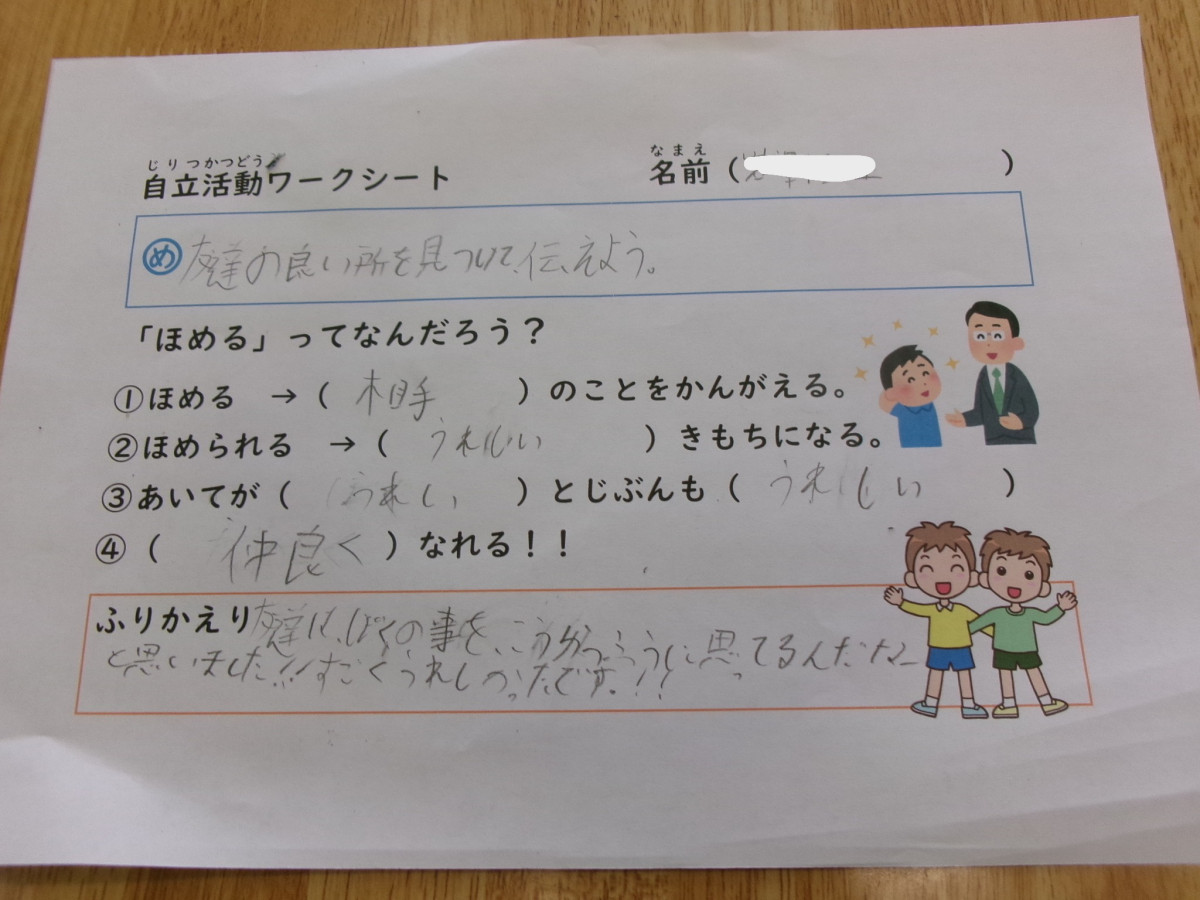 じりつかつどう なまえ
自立活動ワークシート 名前（ ）
め 友達の良い所を見つけて、伝えよう。
「ほめる」ってなんだろう？
①ほめる →（ 相手 ）のことをかんがえる。
②ほめられる →（ うれしい ）きもちになる。
③あいてが（ うれしい ）とじぶんも（ うれしい ）
④（ 仲良く ）なれる！！
ふりかえり 友達は、ぼくの事を、こう ふうに思ってるんだなー
と思いました!!すごくうれしかったです。!!